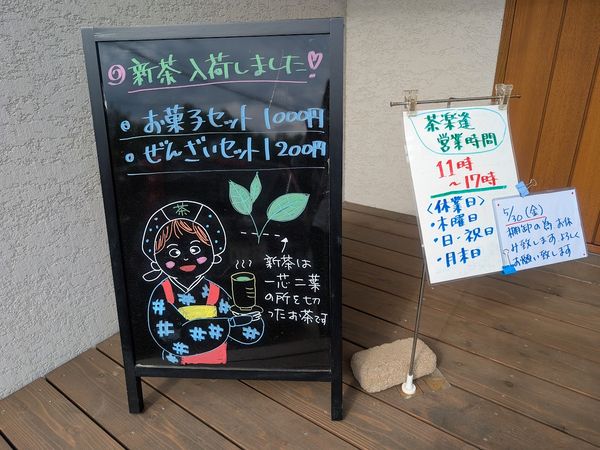 新茶入荷しました!
お菓子セット 1000円
ぜんざいセット 1200円
茶
新茶は
一芯二葉
の所を切
ったお茶です
茶楽逢
営業時間
11時
～17時
〈休業日〉
・木曜日
・日・祝日
・月末日
5/30(金)
棚卸の為お休
み致します よろしく
お願い致します